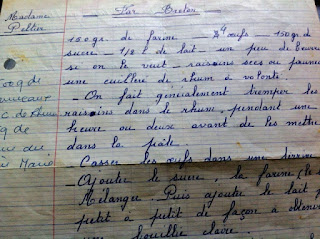 Madame
Peltier
Far Breton
150 gr de farine 4 œufs - 150 gr de
sucre - 1/2 l de lait - un peu de beurre
si on le veut - raisins secs ou pruneaux
une cuillère de rhum à volonté.
- On fait généralement tremper les
raisins dans le rhum, pendant une
heure ou deux avant de les mettre
dans la pâte.
Casser les œufs dans une
- Ajouter le sucre, la farine
Mélanger. Puis ajouter le lait
petit à petit de façon à obtenir
une bouillie claire.